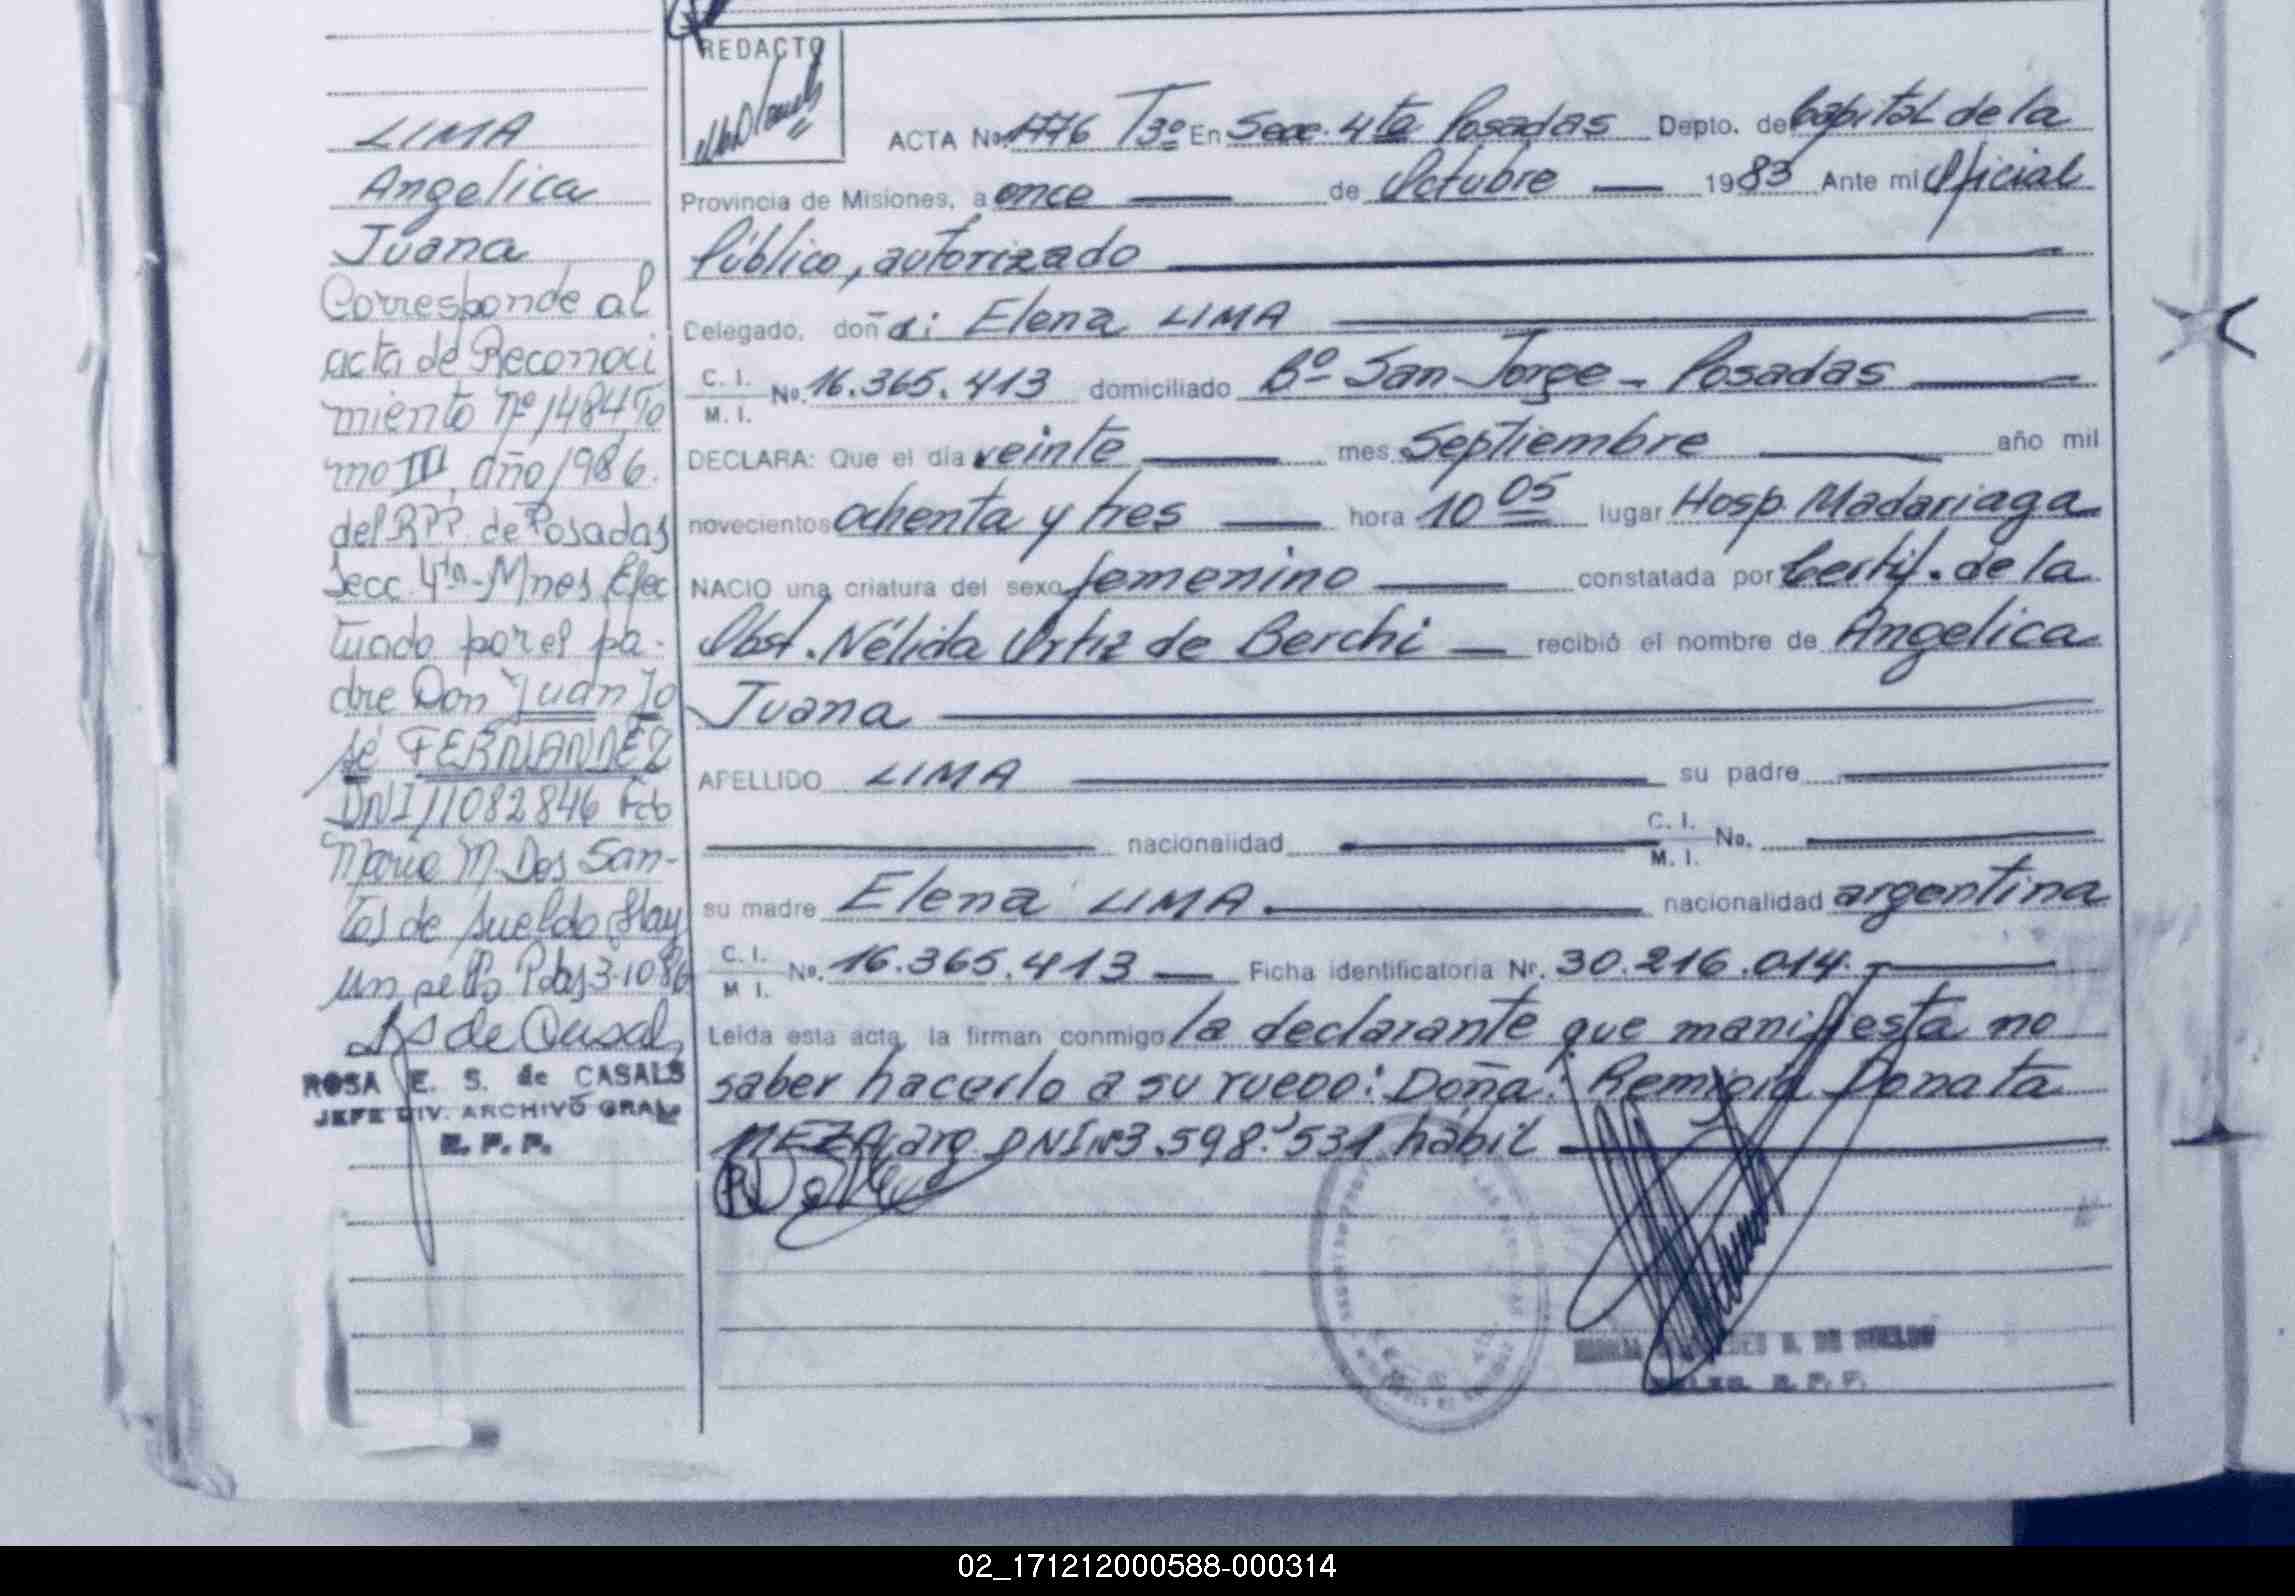 LIMA
Angelica
Juana
Corresponde al
acta de Reconoci
miento Nº 1484 To
mo III, año 1986.
del R.P.P. de Posadas
Secc. 4ta - Mnes, Efec
tuado por el pa-
dre Don Juan Jo
sé FERNANDEZ
DNI 11082846 Fdo
Maria M. Dos San-
tos de Sueldo, Hay
un sello Pdas 3-10-86
ROSA E. S. de CASALS
JEFE DIV. ARCHIVO GRAL.
R. P. P.
REDACTO
ACTA No. 1776 T 3º En Secc. 4ta Posadas Depto. de Capital de la
Provincia de Misiones, a once de Octubre 1983 Ante mi Oficial
Público, autorizado
Delegado, doña: Elena LIMA
C. I. M. I. No. 16.365.413 domiciliado Bº San Jorge - Posadas
DECLARA: Que el día veinte mes Septiembre año mil
novecientos ochenta y tres hora 10 05 lugar Hosp. Madariaga
NACIO una criatura del sexo femenino constatada por Certif. de la
Obst. Nélida Ortiz de Berchi recibió el nombre de Angelica
Juana
APELLIDO LIMA su padre
nacionalidad C. I. M. I. No.
su madre Elena LIMA nacionalidad argentina
C. I. M. I. No. 16.365.413 Ficha identificatoria Nr. 30.216.014.
Leida esta acta, la firman conmigo la declarante que manifiesta no
saber hacerlo a su ruego: Doña: Remigia Donata
MEZA, arg. DNI Nº 3.598.531 hábil
DE SUELDO
R. P. P.
02_171212000588-000314